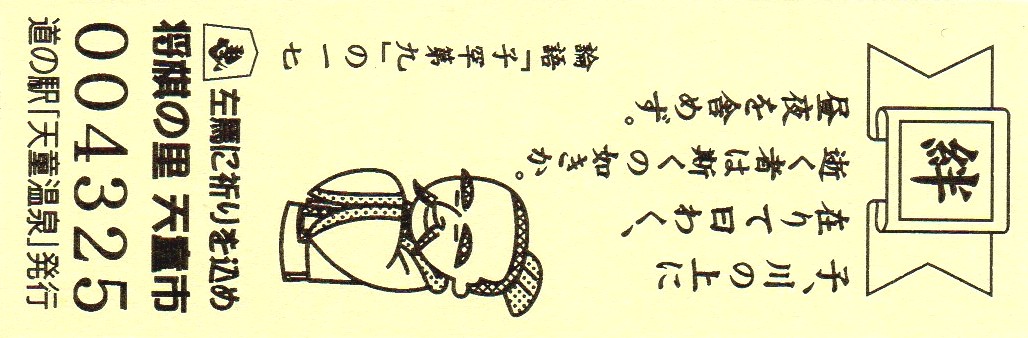 絆
子、川の上に
在りて曰わく、
逝く者は斯くの如きか。
昼夜を舎めず。
論語「子罕第九」の一七
左馬に祈りを込め
将棋の里 天童市
004325
道の駅「天童温泉」発行